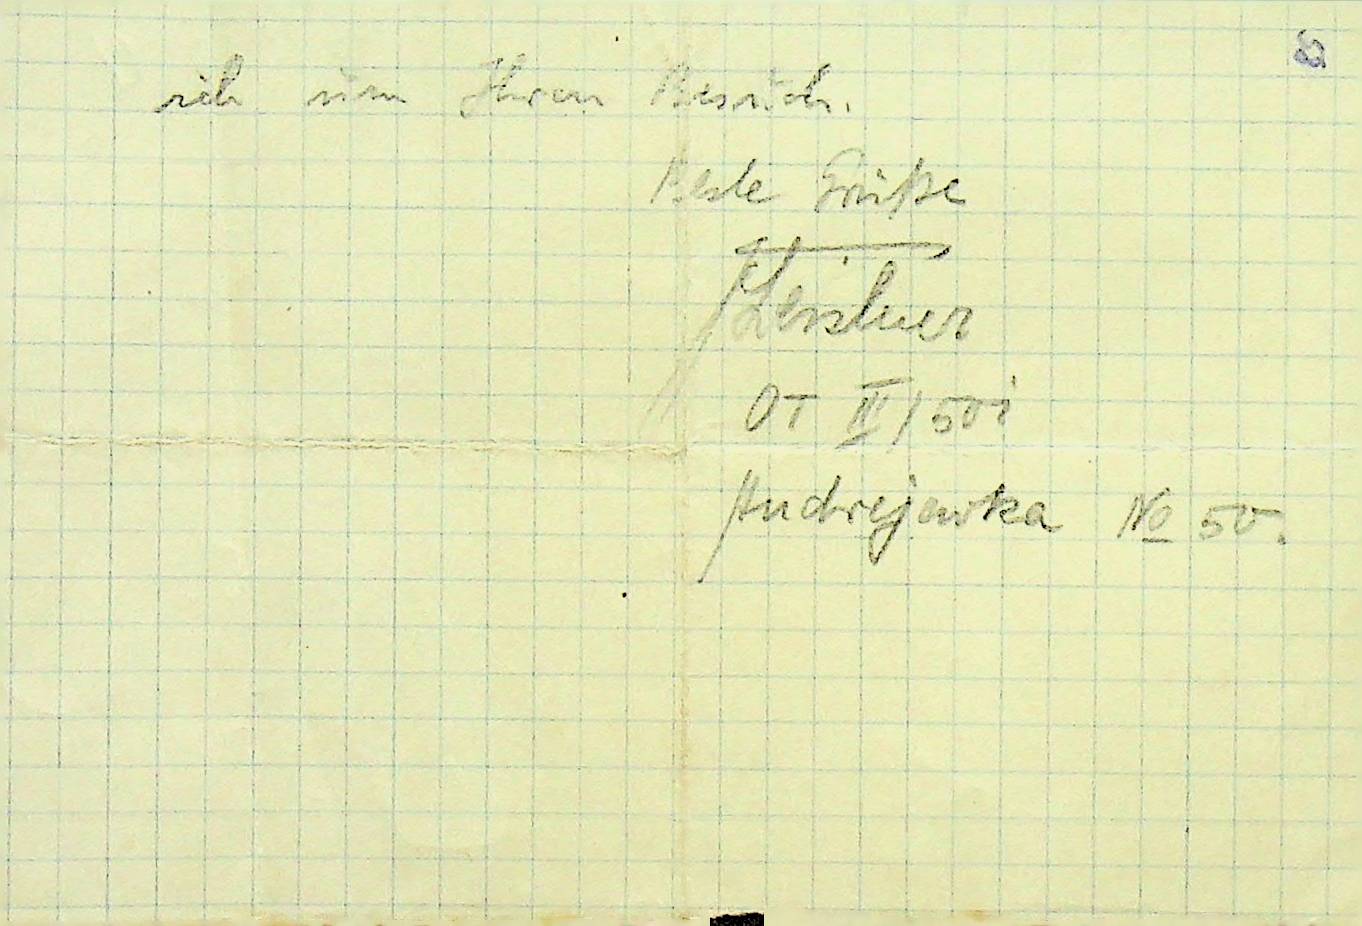 ich um Ihren Besuch.
Beste Grüße
Leistner
OT IV/50i
Andrejewka No 50.